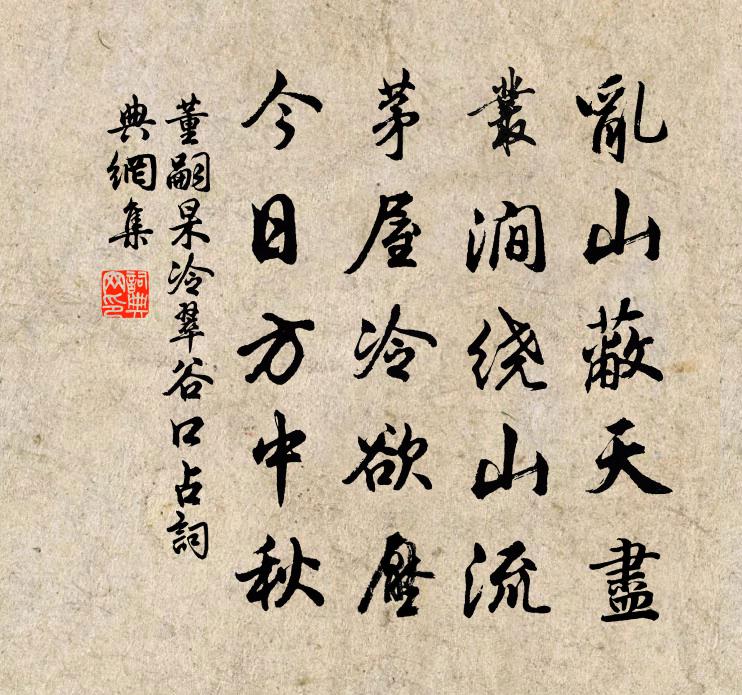 亂山蔽天盡
叢澗绕山流
茅屋冷欲壓
今日方中秋
董嗣杲冷翠谷口占詞
典網集
詞典
网印